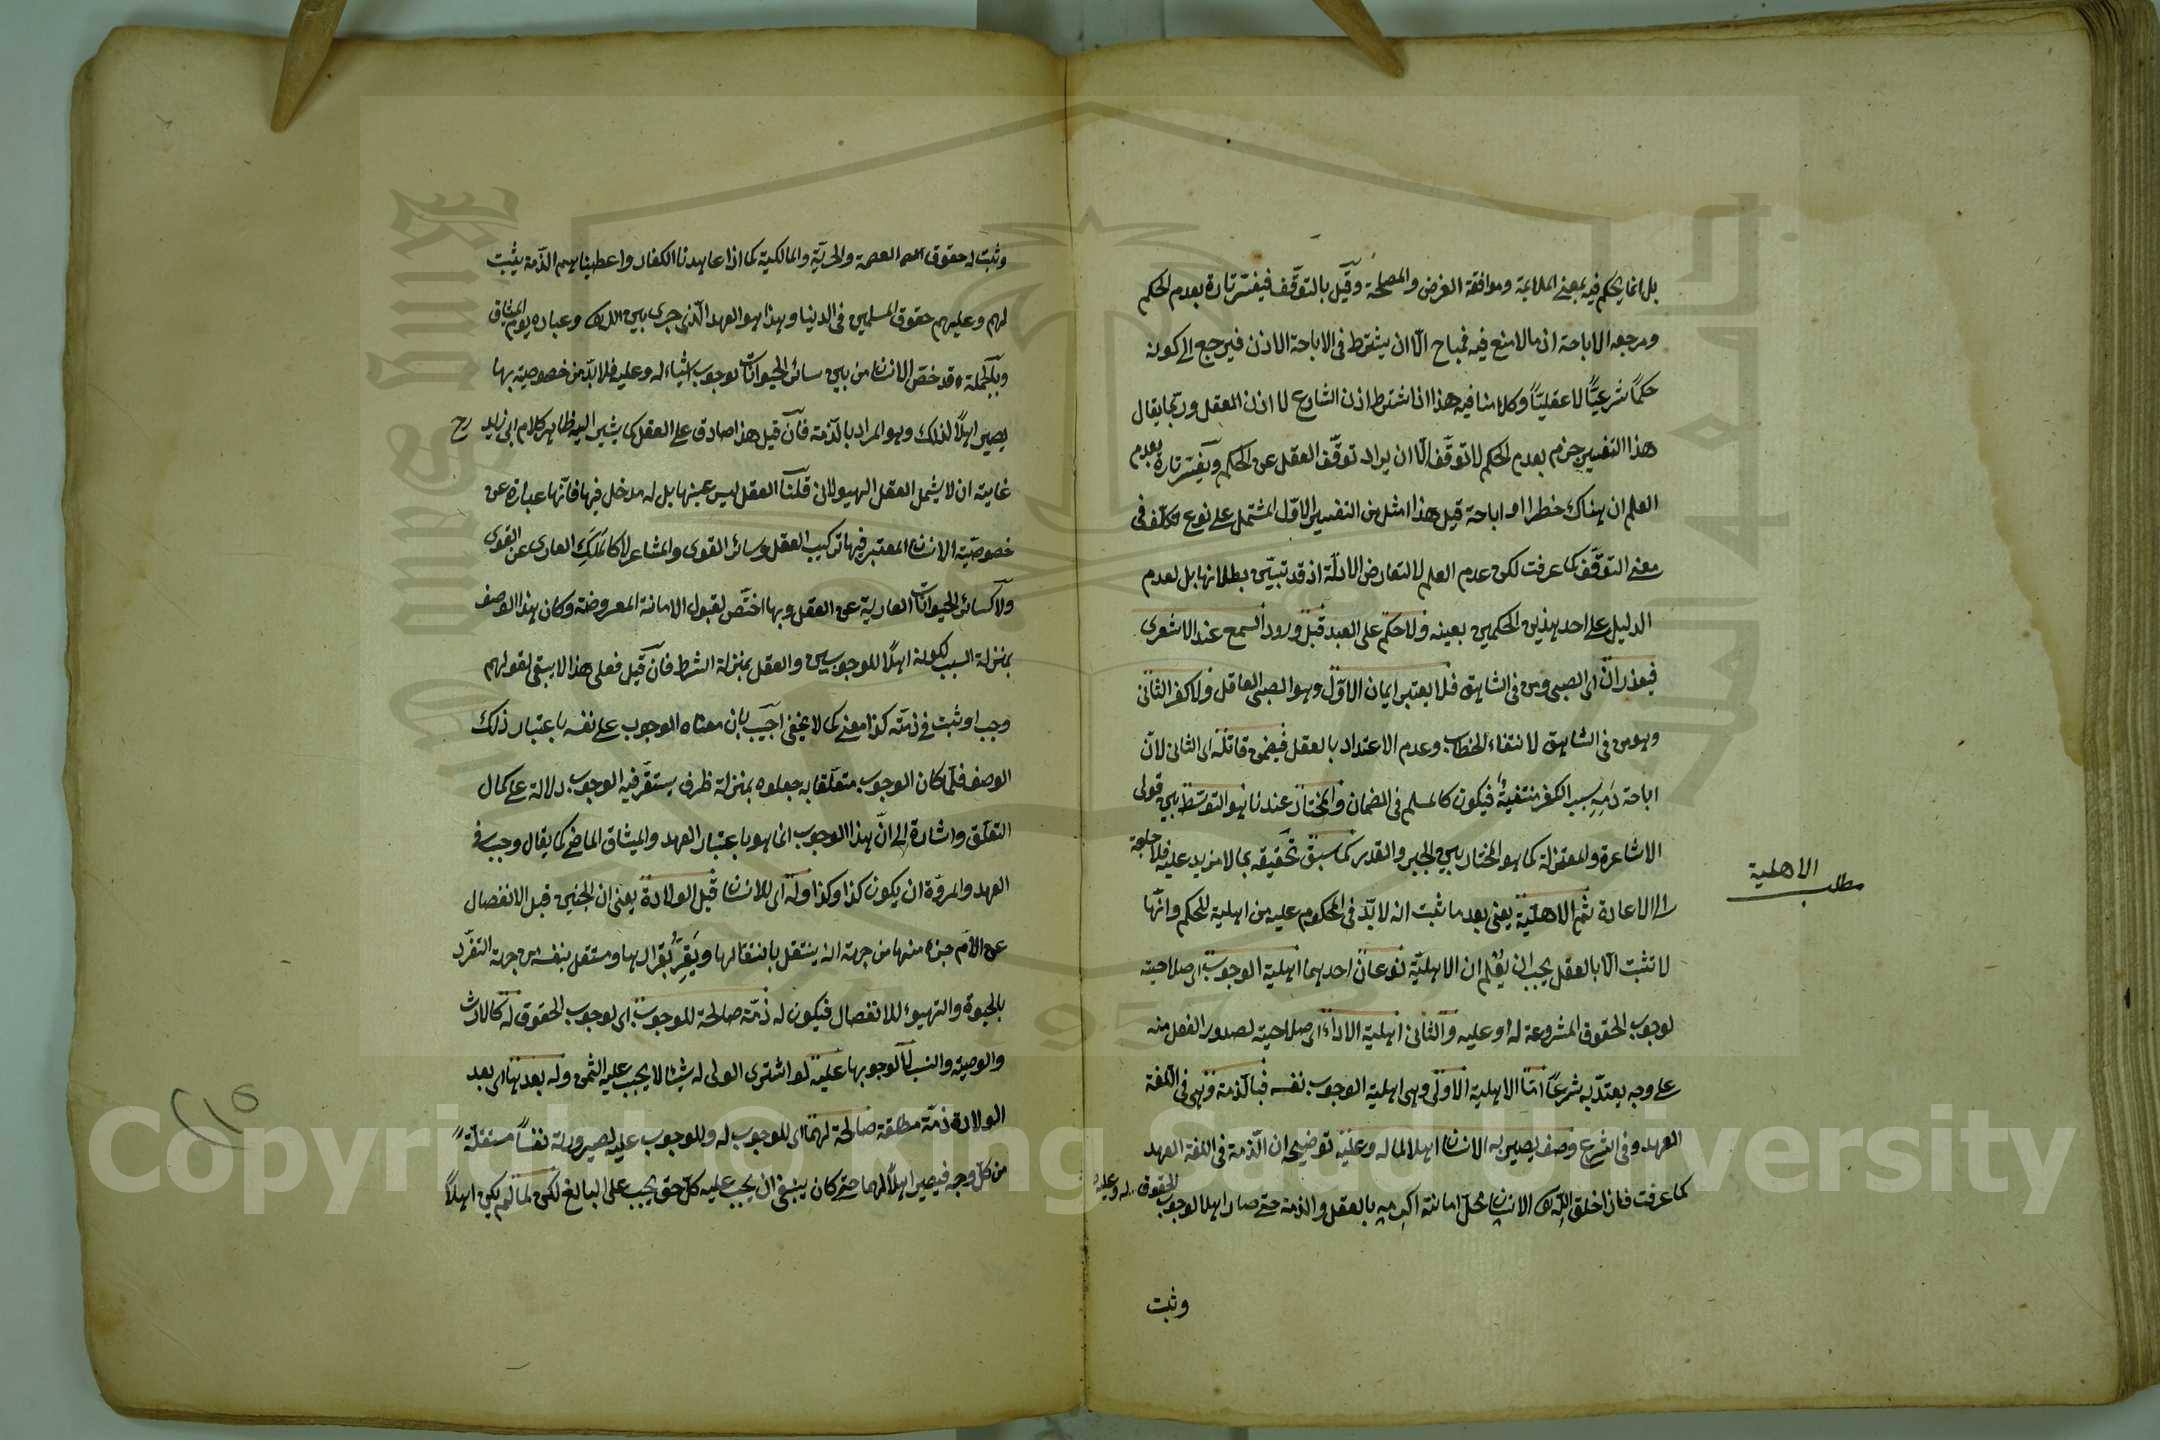 بل انما يحكم فيه بمعنى الملايمة وموافقة الغرض والمصلحة وقيل بالتوقف فيفسر تارة بعدم الحكم
ومرجعه الاباحة اذ ما لا منع فيه فمباح الا ان يشترط فى الاباحة الاذن فيرجع الى كونه
حكما شرعيا لا عقليا وكلامنا فيه هذا اذا اشترط اذن الشارع لا اذن العقل وربما يقال
هذا التفسير جزم بعدم الحكم لا توقف الا ان يراد توقف العقل عن الحكم ويفسر تارة بعدم
العلم ان هناك خطرا او اباحة قيل هذا امثل من التفسير الاول المشتمل على نوع تكلف فى
معنى التوقف كما عرفت لكن عدم العلم لا لتعارض الادلة اذ قد تبين بطلانها بل لعدم
الدليل على احد هذين الحكمين بعينه ولا حكم على العبد قبل ورود السمع عند الاشعرى
فيعذران اى الصبى ومن فى الشاهق فلا يعتبر ايمان الاول وهو الصبى العاقل ولا كفر الثانى
وهو من فى الشاهق لانتفاء الخطاب وعدم الاعتداد بالعقل فيضمن قاتله اى الثانى لان
اباحة دمه بسبب الكفر منتفية فيكون كالمسلم فى الضمان والمختار عندنا هو التوسط بين قولى
الاشاعرة والمعتزلة كما هو المختار بين الجبر والقدر كما سبق تحقيقه بما لا مزيد عليه فلا حاجة
الى الاعادة ثم الاهلية يعنى بعد ما ثبت انه لا بد فى المحكوم عليه من اهلية للحكم وانها
لا تثبت الا بالعقل يجب ان يعلم ان الاهلية نوعان احدهما اهلية الوجوب اى صلاحيته
لوجوب الحقوق المشروعة له او عليه والثانى اهلية الاداء اى صلاحيته لصدور الفعل منه
على وجه يعتد به شرعا اما الاهلية الاولى وهى اهلية الوجوب نفسه فبالذمة وهى فى اللغة
العهد وفى الشرع وصف يصير به الانسان اهلا لما له وعليه توضيحه ان الذمة فى اللغة العهد
كما عرفت فاذا خلق الله تع الانسان محل امانته اكرمه بالعقل والذمة حتى صار اهلا لوجوب الحقوق له وعليه
وثبت
مطلب الاهلية
وثبت له حقوق العصمة والحرية والمالكية كما اذا عاهدنا الكفار واعطيناهم الذمة يثبت
لهم وعليهم حقوق المسلمين فى الدنيا وهذا هو العهد الذى جرى بين الله تع وعباده يوم الميثاق
وبالجملة قد خص الانسان من بين سائر الحيوانات بوجوب اشياء له وعليه فلا بد من خصوصية بها
يصير اهلا لذلك وهو المراد بالذمة فان قيل هذا صادق على العقل كما يشير اليه ظاهر كلام ابى زيد رح
غايته ان لا يشمل العقل الهيولانى قلنا العقل ليس عينها بل له مدخل فيها فانها عبارة عن
خصوصية الانسان المعتبر فيها تركيب العقل وسائر القوى والمشاعر لا كالملك العارى عن القوى
ولا كسائر الحيوانات العارية عن العقل وبها اختص لقبول الامانة المعروضة وكان هذا الوصف
بمنزلة السبب لكونه اهلا للوجوب والعقل بمنزلة الشرط فان قيل فعلى هذا لا يبقى لقولهم
وجب او ثبت فى ذمته كذا معنى كما لا يخفى اجيب بان معناه الوجوب على نفسه باعتبار ذلك
الوصف فلما كان الوجوب متعلقا به جعلوه بمنزلة ظرف يستقر فيه الوجوب دلالة على كمال
التعلق واشارة الى ان هذا الوجوب انما هو باعتبار العهد والميثاق الماضى كما يقال وجب فى
العهد والمروة ان يكون كذا وكذا وله اى للانسان قبل الولادة يعنى ان الجنين قبل الانفصال
عن الام جزء منها من جهة انه ينتقل بانتقالها ويقر بقرارها ومستقل بنفسه من جهة التفرد
بالحيوة والتهيوء للانفصال فيكون له ذمة صالحة للوجوب اى لوجوب الحقوق له كالارث
والوصية والنسب لا لوجوبها عليه لو اشترى الولى له شيئا لا يجب عليه الثمن وله بعدها اى بعد
الولادة ذمة مطلقة صالحة لهما اى للوجوب له وللوجوب عليه لصيرورته نفسا مستقلة
من كل وجه فيصير اهلا لهما حتى كان ينبغى ان يجب عليه كل حق يجب على البالغ لكن لما لم يكن اهلا
Copyright © King Saud University
King Saud University
1957